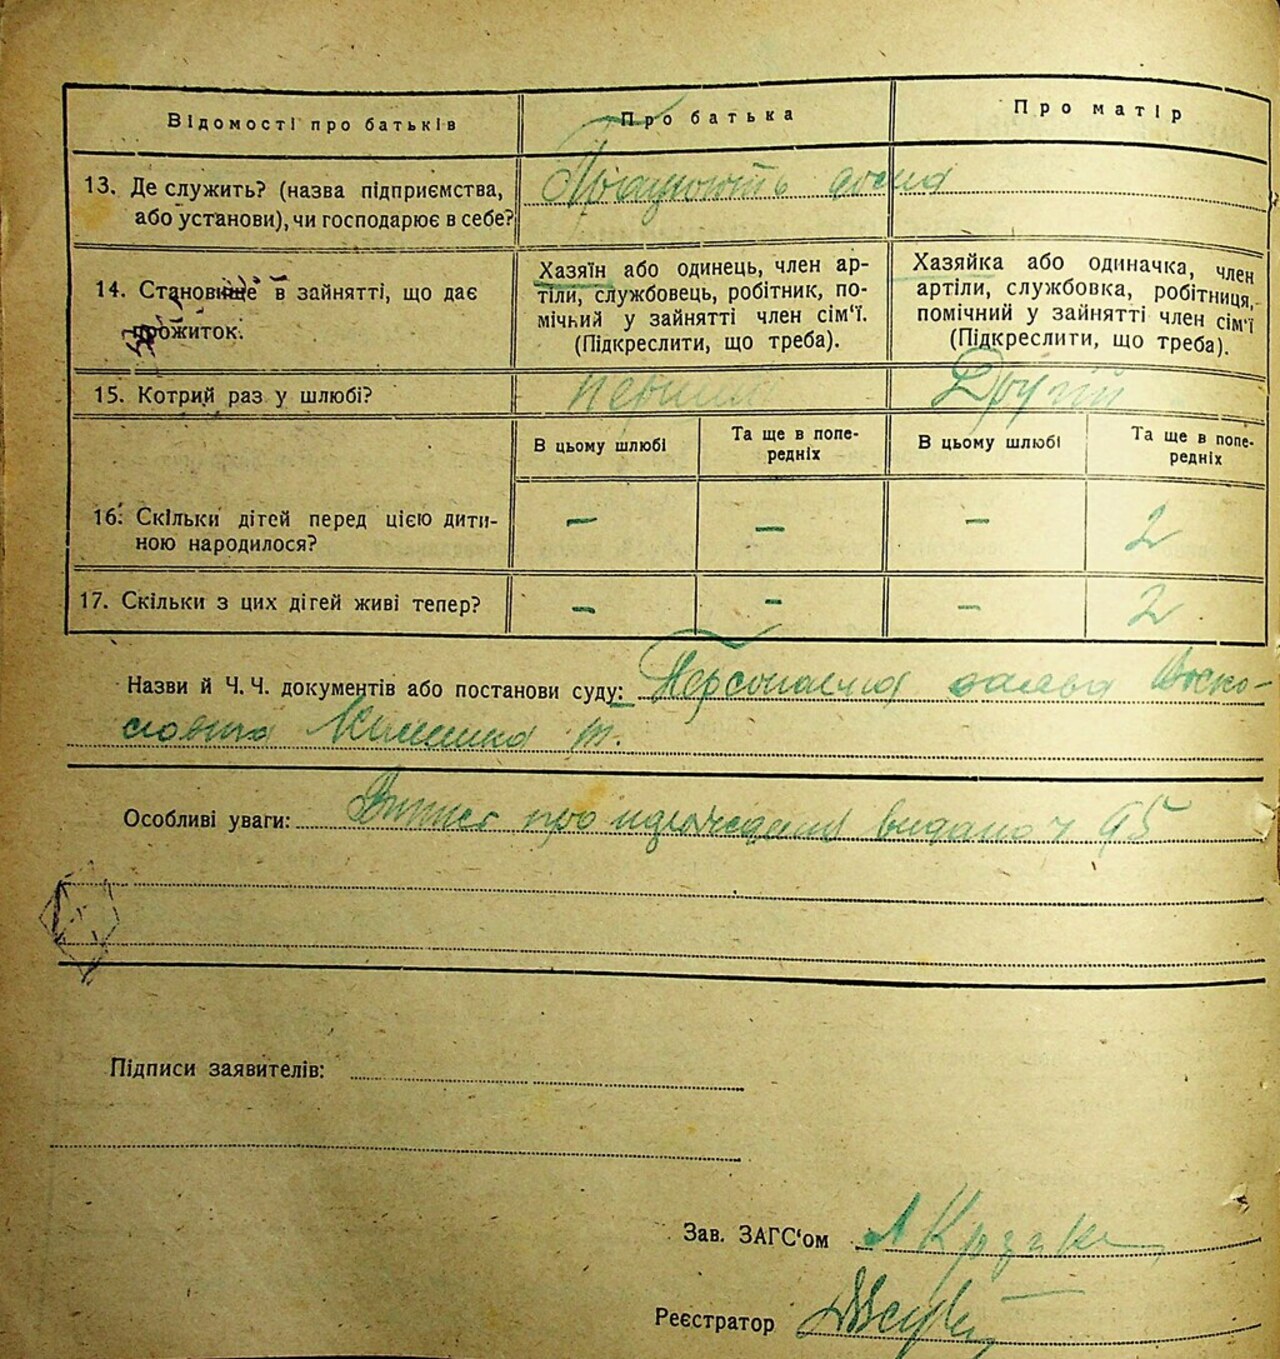 Відомості про батьків
Про батька
Про матір
13. Де служить? (назва підприємства,
або установи), чи господарює в себе?
Працюють дома
14. Становище в зайнятті, що дає
прожиток.
Хазяїн або одинець, член ар-
тіли, службовець, робітник, по-
мічний у зайнятті член сім'ї.
(Підкреслити, що треба).
Хазяйка або одиначка, член
артіли, службовка, робітниця,
помічний у зайнятті член сім'ї
(Підкреслити, що треба).
15. Котрий раз у шлюбі?
перший
Другий
В цьому шлюбі
Та ще в попе-
редніх
В цьому шлюбі
Та ще в попе-
редніх
16. Скільки дітей перед цією дити-
ною народилося?
– – – 2
17. Скільки з цих дітей живі тепер?
– – – 2
Назви й Ч. Ч. документів або постанови суду: Персональна заява
Особливі уваги: Витяг про народження видано ч 95
Підписи заявителів:
Зав. ЗАГС'ом
Реєстратор